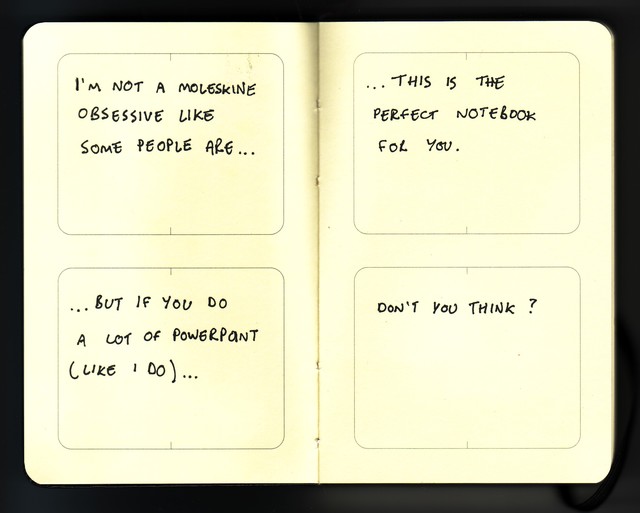 I'M NOT A MOLESKINE
OBSESSIVE LIKE
SOME PEOPLE ARE...
...BUT IF YOU DO
A LOT OF POWERPOINT
(LIKE I DO)...
...THIS IS THE
PERFECT NOTEBOOK
FOR YOU.
DON'T YOU THINK?